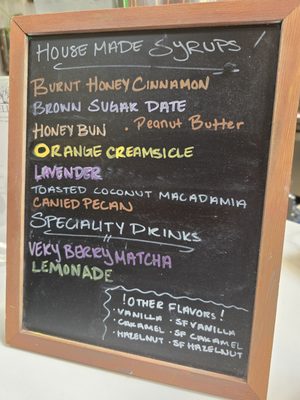 HOUSE MADE SYRUPS
BURNT HONEY CINNAMON
BROWN SUGAR DATE
HONEY BUN · PEANUT BUTTER
ORANGE CREAMSICLE
LAVENDER
TOASTED COCONUT MACADAMIA
CANIED PECAN
SPECIALITY DRINKS
VERY BERRY MATCHA
LEMONADE
!OTHER FLAVORS!
· VANILLA · SF VANILLA
· CARAMEL · SF CARAMEL
· HAZELNUT · SF HAZELNUT